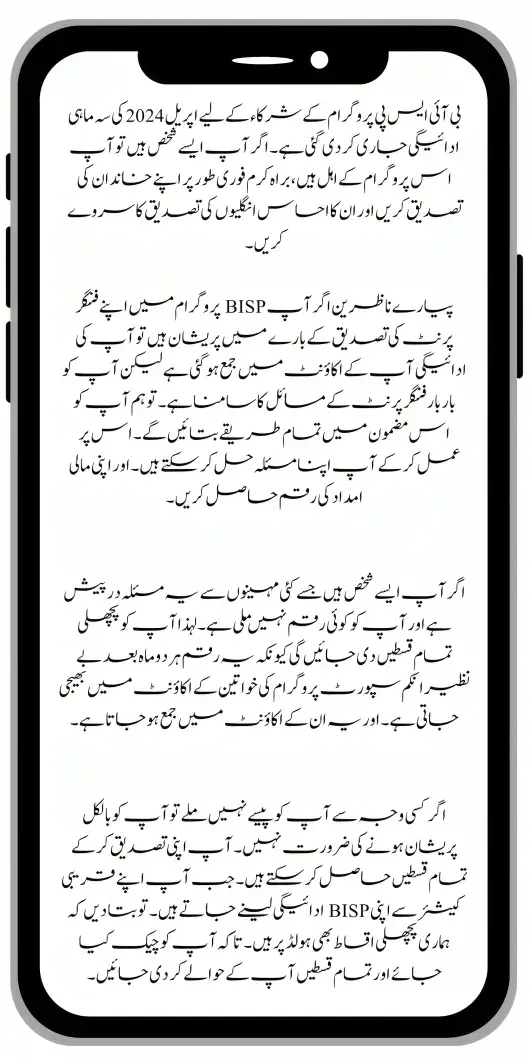 بی آئی ایس پی پروگرام کے شرکاء کے لیے اپریل 2024 کی سہ ماہی
ادائیگی جاری کر دی گئی ہے۔ اگر آپ ایسے شخص ہیں تو آپ
اس پروگرام کے اہل ہیں، براہ کرم فوری طور پر اپنے خاندان کی
تصدیق کریں اور ان کا احساس انگلیوں کی تصدیق کا سروے
کریں۔
پیارے ناظرین اگر آپ BISP پروگرام میں اپنے فنگر
پرنٹ کی تصدیق کے بارے میں پریشان ہیں تو آپ کی
ادائیگی آپ کے اکاؤنٹ میں جمع ہو گئی ہے لیکن آپ کو
بار بار فنگر پرنٹ کے مسائل کا سامنا ہے۔ تو ہم آپ کو
اس مضمون میں تمام طریقے بتائیں گے۔ اس پر
عمل کر کے آپ اپنا مسئلہ حل کر سکتے ہیں۔ اور اپنی مالی
امداد کی رقم حاصل کریں۔
اگر آپ ایسے شخص ہیں جسے کئی مہینوں سے یہ مسئلہ درپیش
ہے اور آپ کو کوئی رقم نہیں ملی ہے۔ لہذا آپ کو پچھلی
تمام قسطیں دی جائیں گی کیونکہ یہ رقم ہر دو ماہ بعد بے
نظیر انکم سپورٹ پروگرام کی خواتین کے اکاؤنٹ میں بھیجی
جاتی ہے۔ اور یہ ان کے اکاؤنٹ میں جمع ہو جاتا ہے۔
اگر کسی وجہ سے آپ کو پیسے نہیں ملے تو آپ کو بالکل
پریشان ہونے کی ضرورت نہیں۔ آپ اپنی تصدیق کر کے
تمام قسطیں حاصل کر سکتے ہیں۔ جب آپ اپنے قریبی
کیشئر سے اپنی BISP ادائیگی لینے جاتے ہیں۔ تو بتا دیں کہ
ہماری پچھلی اقساط بھی ہولڈ پر ہیں۔ تاکہ آپ کو چیک کیا
جائے اور تمام قسطیں آپ کے حوالے کر دی جائیں۔